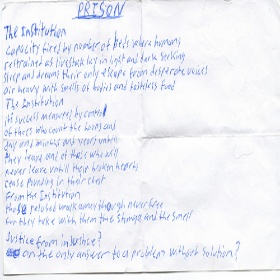 PRISON
The Institution
capacity fixed by number of beds where humans
restrained as livestock lay in light and dark seeking
sleep and dreams their only escape from desperate voices
air heavy with smells of bodies and tasteless food
The Institution
its success measured by control
of those who count the hours and
days and months and years until
they leave and of those who will
never leave until their broken hearts
cease pounding in their chest
From the Institution
those released walk away though never free
for they take with them the stigma and the smell
Justice from injustice?
on the only answer to a problem without solution?